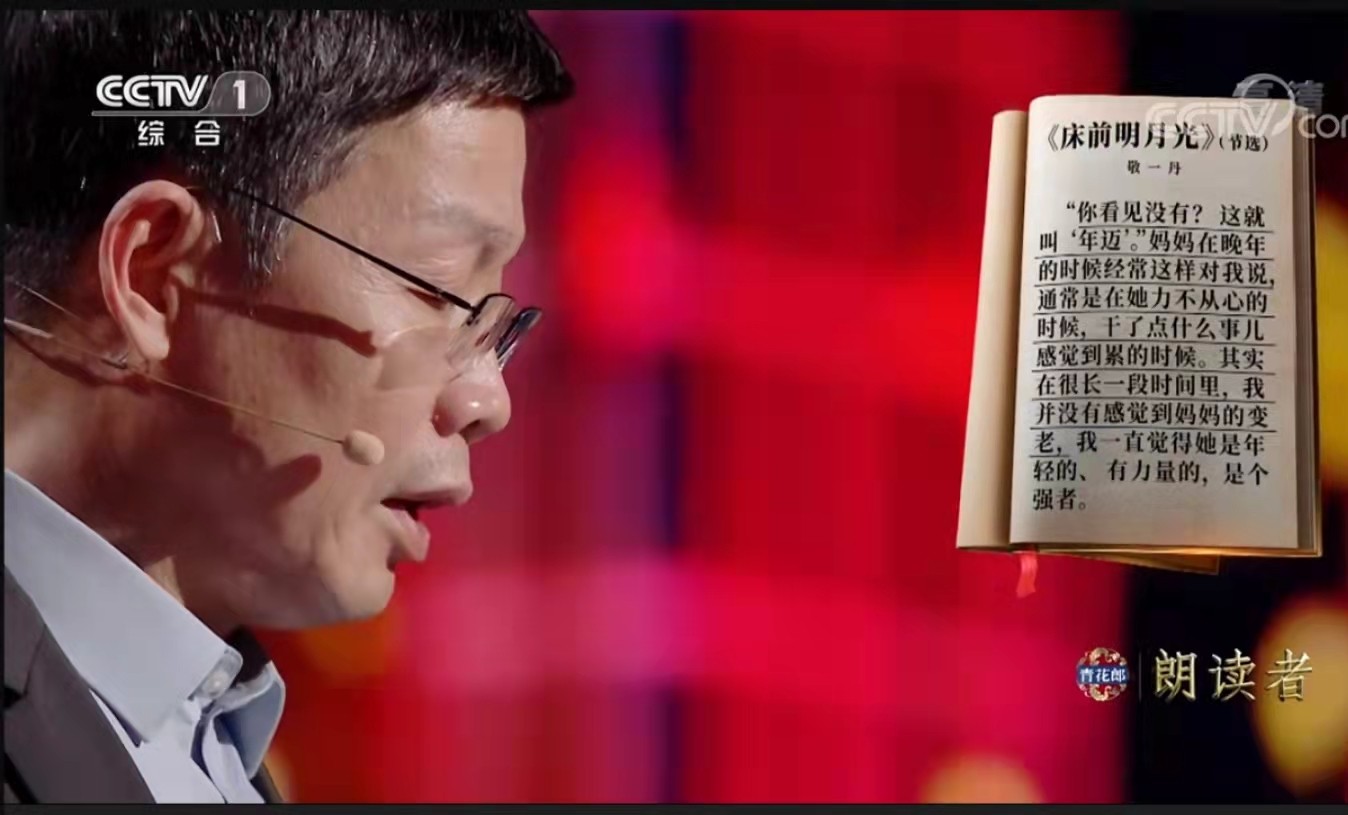 CCTV 1
综合
CCTV.com
高清
《床前明月光》(节选)
敬一丹
“你看见没有？这就
叫‘年迈’。”妈妈在晚年
的时候经常这样对我说，
通常是在她力不从心的
时候，干了点什么事儿
感觉到累的时候。其实
在很长一段时间里，我
并没有感觉到妈妈的变
老，我一直觉得她是年
轻的、有力量的，是个
强者。
青花郎
朗读者